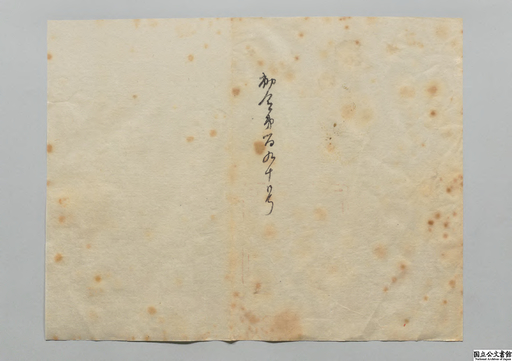 勅令第百九十号
国立公文書館
National Archives of Japan